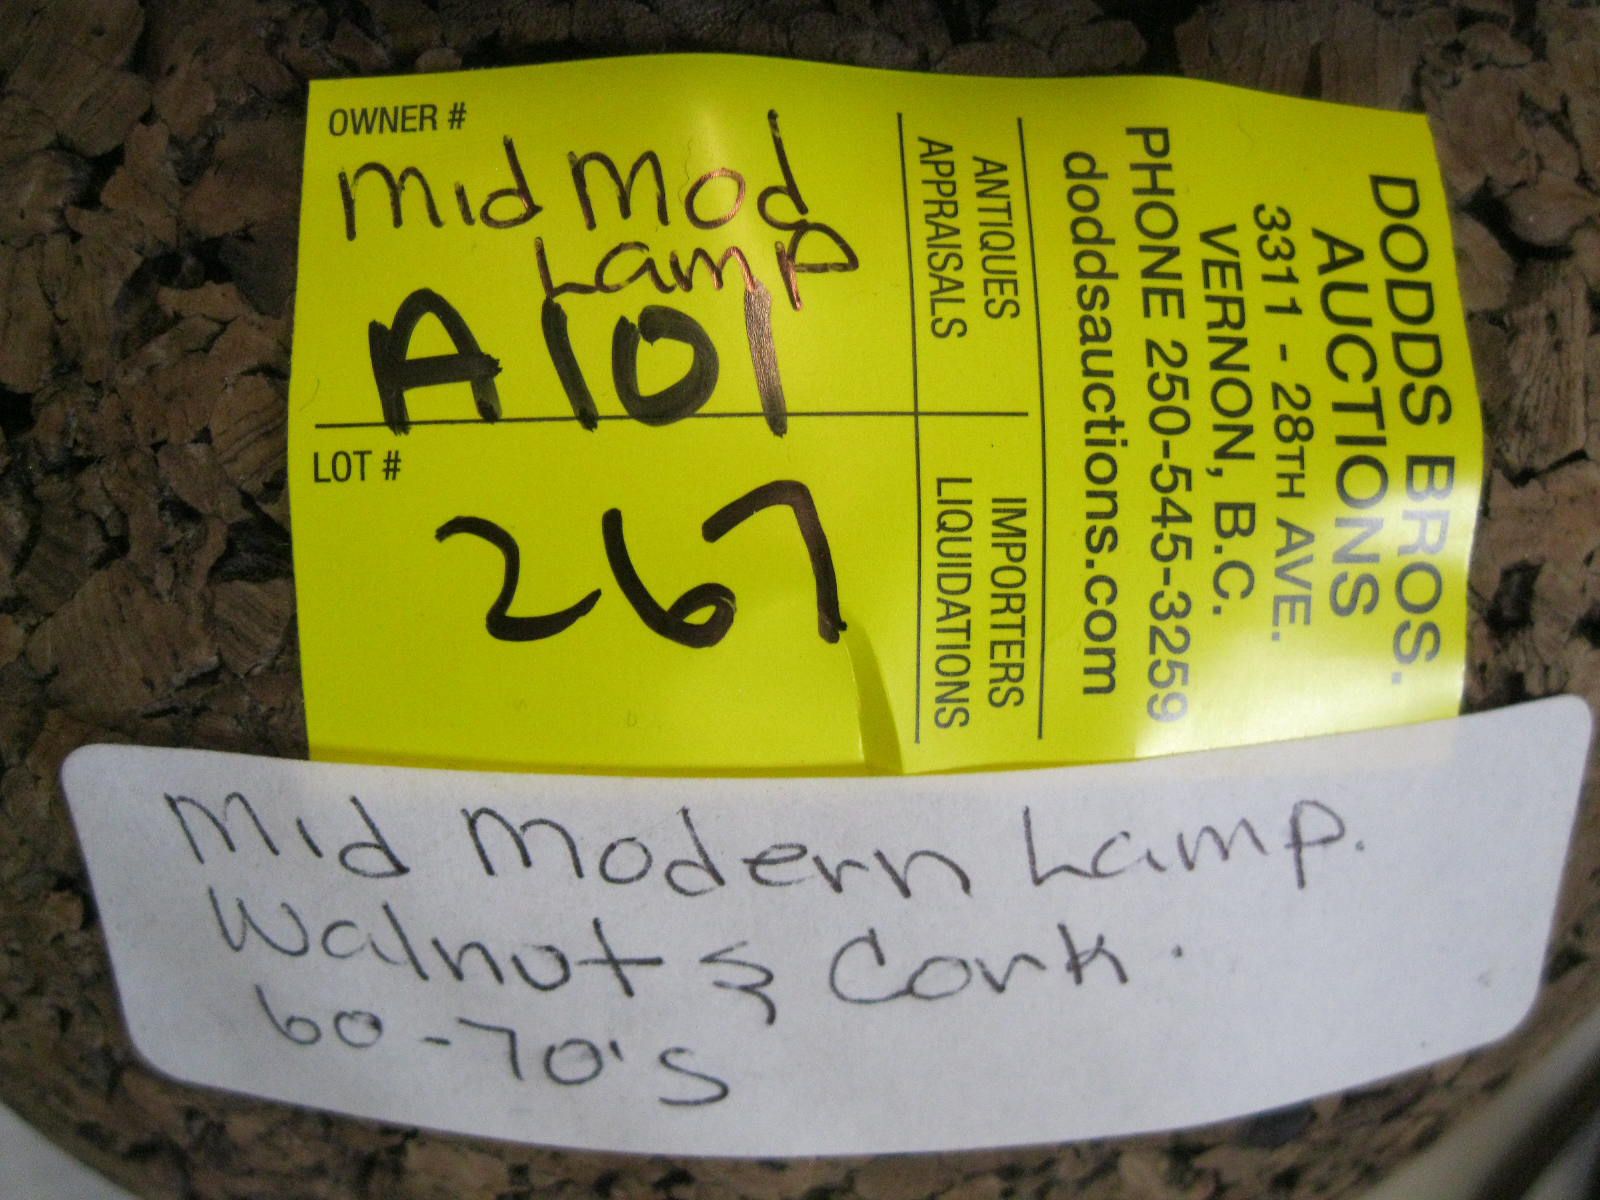 OWNER #
Mid Mod
Lamp
A101
LOT #
267
ANTIQUES
APPRAISALS
IMPORTERS
LIQUIDATIONS
DODDS BROS.
AUCTIONS
3311 - 28TH AVE.
VERNON, B.C.
PHONE 250-545-3259
doddsauctions.com
Mid Modern Lamp.
Walnut & Cork.
60-70's